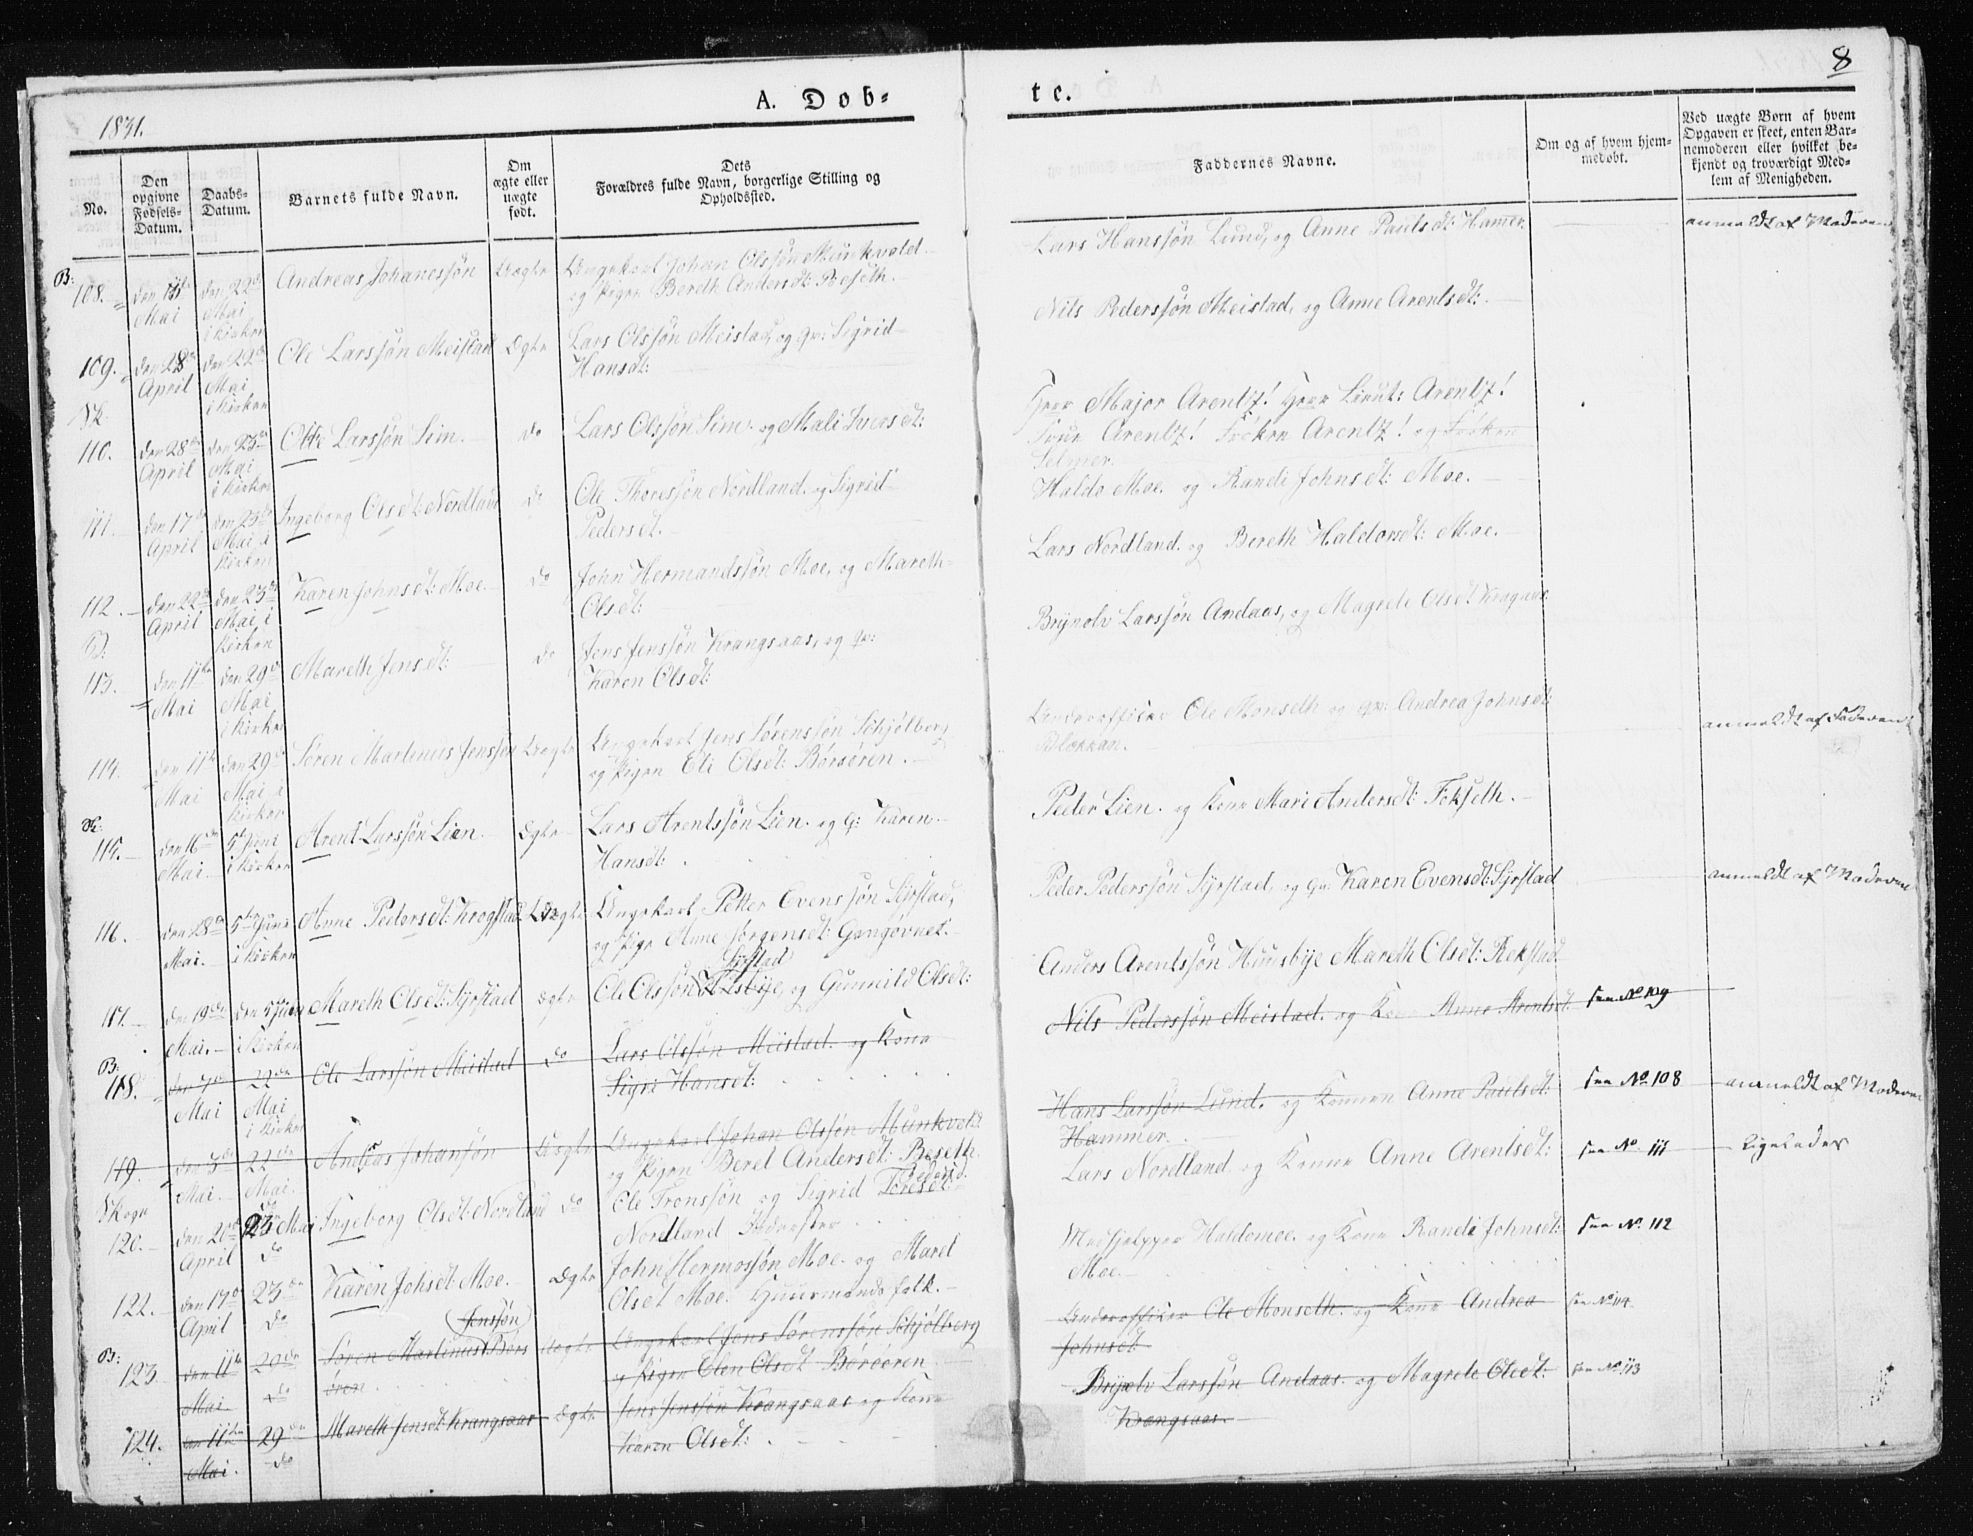 8
A. Dob=
te.
1831.
No.
Den opgivne Fødsels-Datum.
Daabs-Datum.
Barnets fulde Navn.
Om ægte eller uægte født.
Dets Forældres fulde Navn, borgerlige Stilling og Opholdssted.
Faddernes Navne.
Om og af hvem hjemmedøbt.
Ved uægte Børn af hvem Opgaven er skeet, enten Barnemoderen eller hvilket bekjendt og troværdigt Medlem af Menigheden.
B:
108. Mai den 22de Mai i Kirken Andreas Johanessøn Uægte Ungekarl Johan Olssøn Munkvold
og Pigen Bereth Andersdt: Beseth.
Lars Hanssøn Lund, og Anne Paulsdt: Hamer. anmeldt af Moderen
109. den 28de April den 22de Mai i Kirken Ole Larssøn Meistad Ægte Lars Olssøn Meistad, og Qv: Sigrid
Hansdt:
Nils Pederssøn Meistad, og Anne Arentsdt:
Sk.
110. den 28de April den 23de Mai i Kirken Otte Larssøn Lim. do Lars Olssøn Lim. og Mali Iversdt:
Herr Major Arentz! Herr Lieut: Arentz!
Frue Arentz! Frøken Arentz! og Frøken
Selmer.
111. den 17de April den 23de Mai i Kirken Ingeborg Olsdt: Nordland do Ole Thoressøn Nordland. og Sigrid
Pedersdt.
Haldo Moe. og Randi Johnsdt: Moe.
112. den 22de April den 23de Mai i Kirken Karen Johnsdt: Moe. do John Hermandssøn Moe, og Mareth
Olsdt:
Lars Nordland. og Bereth Haldorsdt: Moe.
113. den 11te Mai den 29de Mai i Kirken Mareth Jensdt: do Jens Jenssøn Krangsaas, og Qv:
Karen Olsdt:
Brynolv Larssøn Andaas, og Magrete Olsdt
114. den 11te Mai den 29de Mai i Kirken Søren Martinus Jenssøn Uægte Ungekarl Jens Sørenssøn Schjølberg
og Pigen Eli Olsdt: Børsøren.
Underofficer Ole Monseth og Qv: Andrea Johnsdt
Blokkan. anmeldt af Faderen
Sk:
115. den 16de Mai 5te Juni i Kirken Arent Larssøn Lien. Ægte Lars Arentssøn Lien. og G: Karen
Hansdt:
Peder Lien. og Kone Mari Andersdt: Fokseth.
116. den 28de Mai. 5te Juni i Kirken Anne Pedersdt: Krogstad Uægte Ungekarl Petter Evenssøn Syrstad,
og Pige Anne Jørgensdt: Gangøvnet.
Peder Pederssøn Syrstad, og Qv: Karen Evensdt: Syrstad anmeldt af Moderen
117. den 19de Mai. den 5 Juni i Kirken Mareth Olsdt: Syrstad Ægte Syrstad
Ole Olssøn og Gunnild Olsdt:
Anders Arentssøn Huusbye Mareth Olsdt: Rekstad
B:
118. den 7de Mai 22de Mai i Kirken Ole Larssøn Meistad do Lars Olssøn Meistad. og Kone
Sigri Hansdt:
Nils Pederssøn Meistad. og Kone Anne Arentsdt. see No 109
119. den 3de Mai. 22de Mai. Andreas Johansøn Uægte Ungekarl Johan Olssøn Munkvold
og Pigen Beret Andersdt: Beseth.
Hans Larssøn Lund. og Konen Anne Paulsdt:
Hammer. see No 108 anmeldt af Moderen
120. den 20de April 23 Mai do Ingeborg Olsdt: Nordland do Ole Tronssøn og Sigrid Toresdt: Pedersd.
Nordland
Lars Nordland og Konne Anne Arentsdt: see No 111 Ligeledes
122. den 17de April 23de do Karen Johsdt: Moe. Ægte John Hermossøn Moe. og Maret
Olsdt Moe. Huusmandsfolk.
Medhjelpper Haldomoe. og Kone Randi Johnsdt:
Moe. see No. 112
B:
123. den 11te Mai. 20de do Søren Martinus (Jenssøn) Børs
øren Uægte Ungekarl Jens Sørenssøn Schjølberg
og Pigen Elen Olsdt Børsøren
Underofficer Ole Monseth. og Kone Andrea
Johnsdt. see No 114
124. den 11te Mai. 29de do Mareth Jensdt: Krangsaas Ægte Jens Jenssøn Krangsaas og Kone
Karen Olsdt:
Brynolv Larssøn Andaas. og Magrete Olsdt:
Krangsaas. see No 113